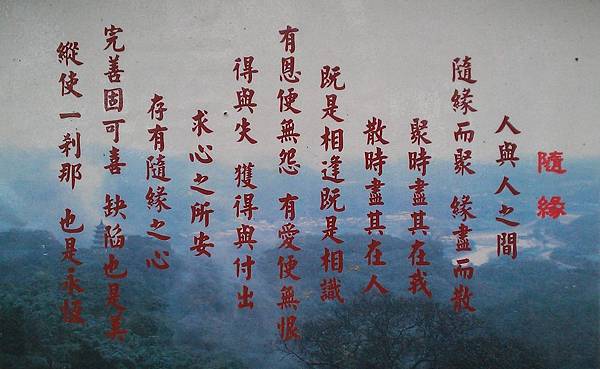 隨緣
人與人之間
隨緣而聚 緣盡而散
聚時盡其在我
散時盡其在人
既是相逢既是相識
有恩便無怨 有愛便無恨
得與失 獲得與付出
求心之所安
存有隨緣之心
完善固可喜 缺陷也是美
縱使一剎那 也是永恆